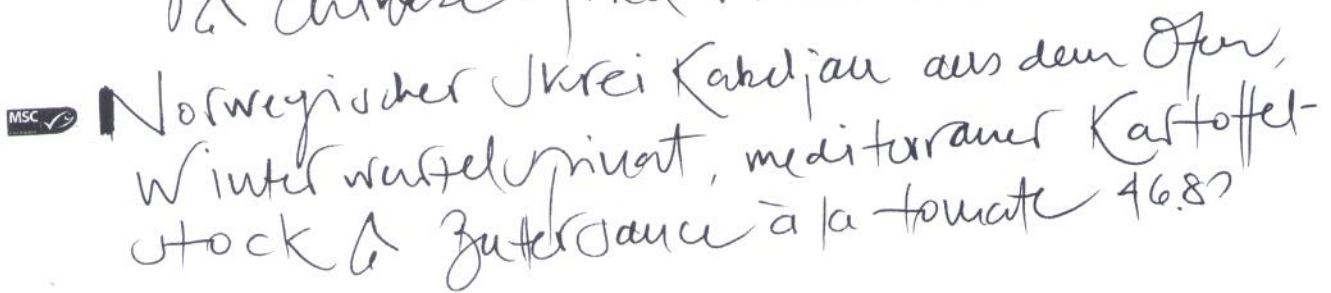 & Chinese
MSC Norwegischer Skrei Kabeljau aus dem Ofen,
Winterwurzelspinat, mediterraner Kartoffel-
stock & Buttersauce à la tomate 46.80